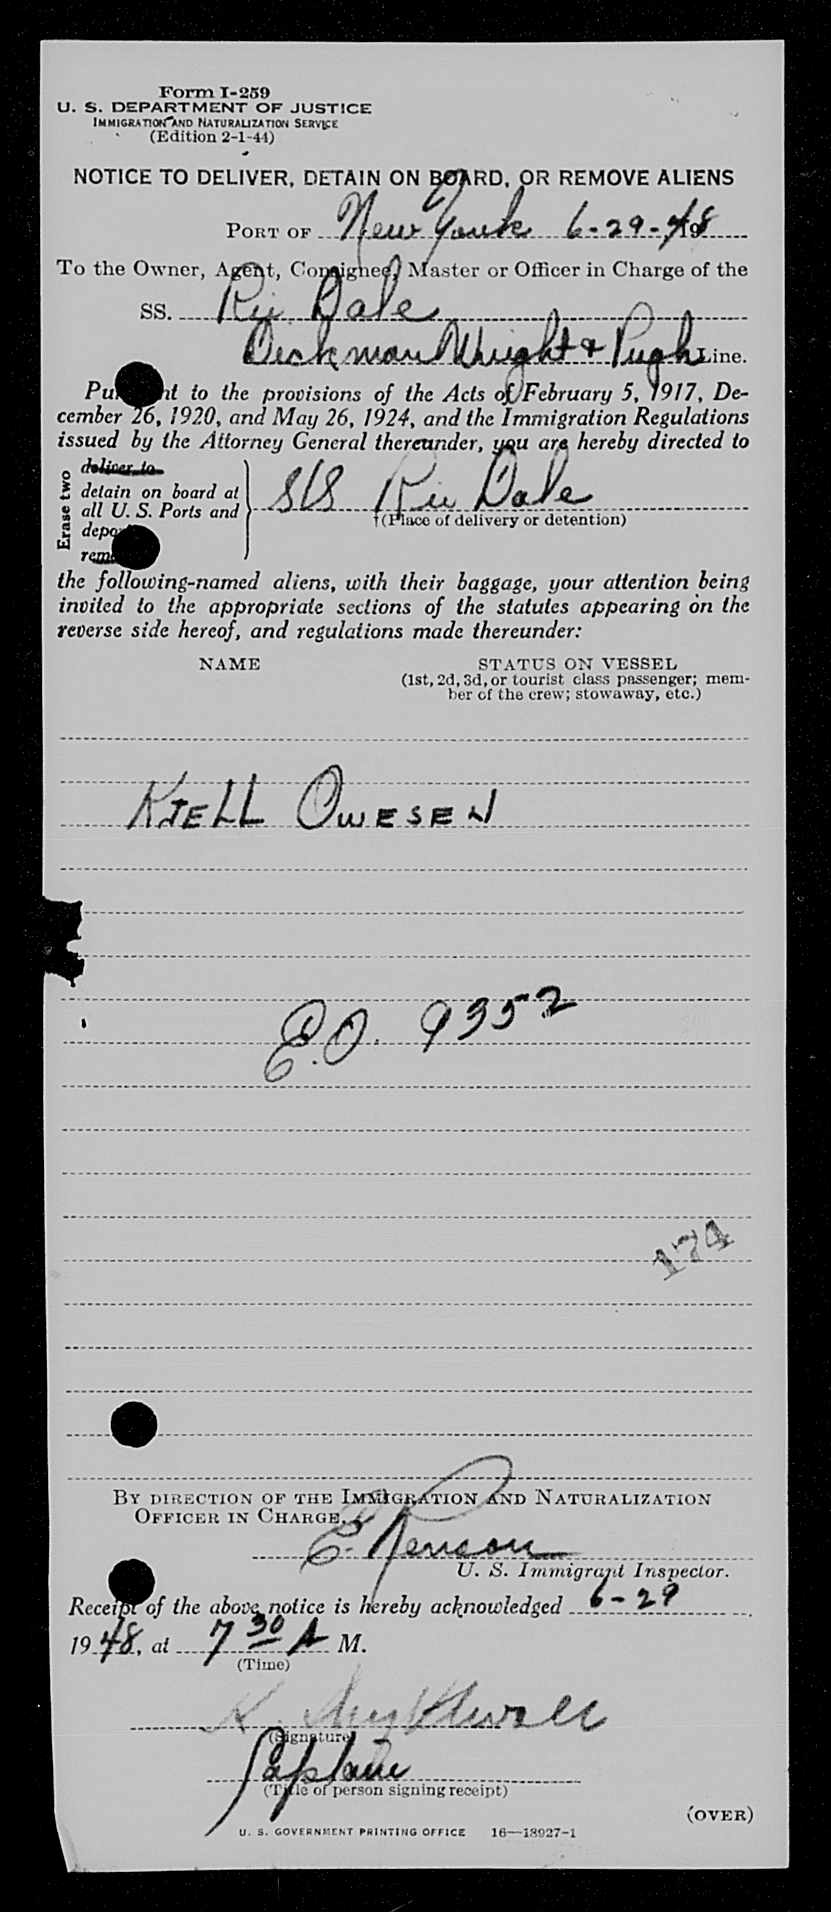 Form I-259
U. S. DEPARTMENT OF JUSTICE
IMMIGRATION AND NATURALIZATION SERVICE
(Edition 2-1-44)
NOTICE TO DELIVER, DETAIN ON BOARD, OR REMOVE ALIENS
PORT OF New York 6-29-48
To the Owner, Agent, Consignee, Master or Officer in Charge of the
SS. Dale
Dickman Wright & Pugh Line.
to the provisions of the Acts of February 5, 1917, De-
cember 26, 1920, and May 26, 1924, and the Immigration Regulations
issued by the Attorney General thereunder, you are hereby directed to
Erase two
deliver to
detain on board at
all U. S. Ports and
S/S Dale
†(Place of delivery or detention)
the following-named aliens, with their baggage, your attention being
invited to the appropriate sections of the statutes appearing on the
reverse side hereof, and regulations made thereunder:
NAME STATUS ON VESSEL
(1st, 2d, 3d, or tourist class passenger; mem-
ber of the crew; stowaway, etc.)
KJELL OWESEN
E.O. 9352
174
BY DIRECTION OF THE IMMIGRATION AND NATURALIZATION
OFFICER IN CHARGE.
E.
U. S. Immigrant Inspector.
Receipt of the above notice is hereby acknowledged 6-29
1948, at 7 30 A M.
(Time)
K.
(Signature)
Captain
(Title of person signing receipt)
(OVER)
U. S. GOVERNMENT PRINTING OFFICE 16—18927-1